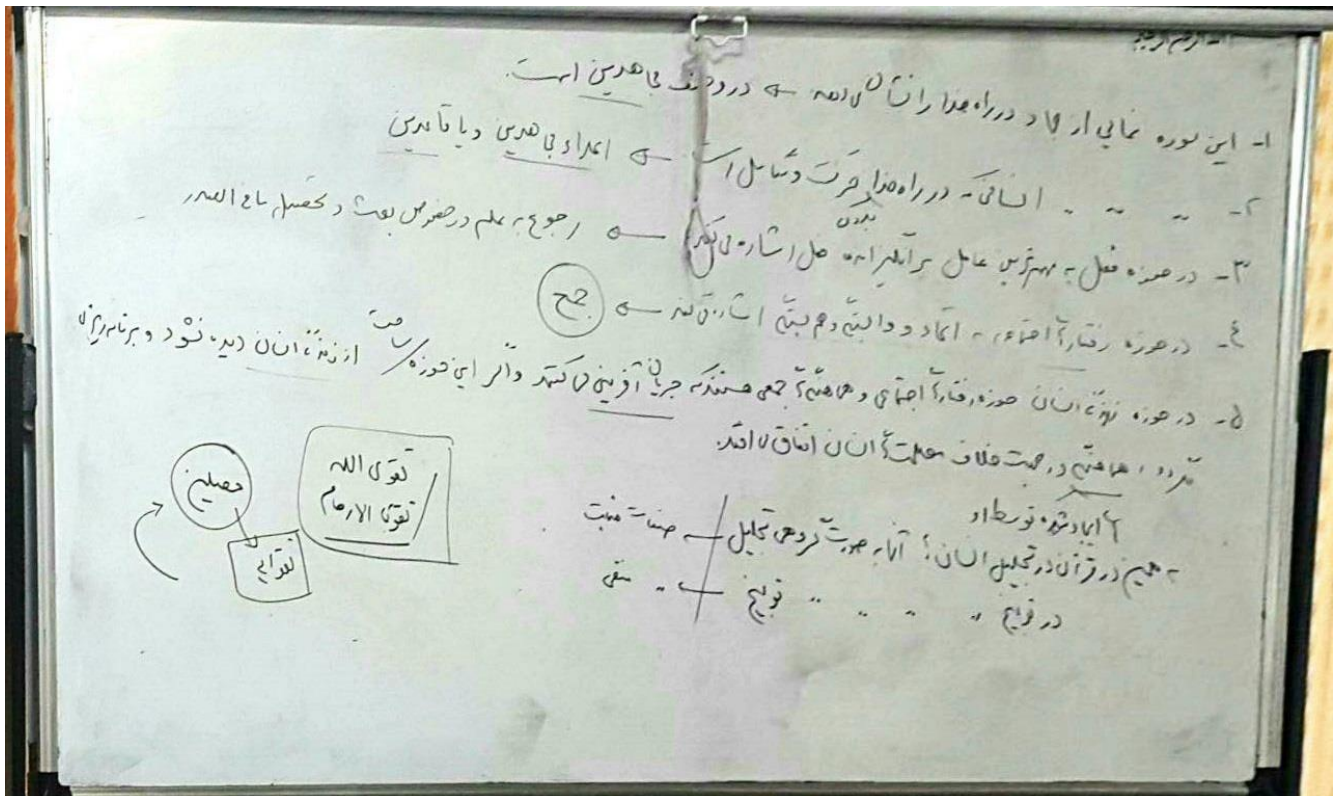 الله الرحمن الرحیم
۱- این سوره نمایی از جهاد در راه خدا را نشان می‌دهد ← در وصف مجاهدین است.
۲- " " " انسانی که در راه خدا حرکت و تمایل است ← اعداء مجاهدین و یا قاعدین
۳- در حوزه فعل به مهم‌ترین عامل برانگیزاننده عمل اشاره می‌کند ← رجوع به علم در خصوص بعث و تحصیل مافی الصدور
٤- در حوزه رفتارهای اجتماعی به اتحاد و وابستگی و هم بستگی اشاره می‌کند ← جمع
۵- در حوزه زندگی انسان حوزه رفتارهای اجتماعی و هماهنگی‌های جمعی هستند که جریان آفرینی می‌کنند و اگر این حوزه / ساحت از زندگی انسان دیده نشود و برنامه‌ریزی
نگردد، هماهنگی در جهت خلاف مصلحت‌های انسان اتفاق می‌افتد.
های ایجاد شده توسط او
همین در قرآن در تجلیل انسان‌ها آنها به صورت گروهی تجلیل ← صفات مثبت
در توبیخ " " " " توبیخ ← " منفی
تقوی الله
تقوی الارحام
مصلین
تقوایی